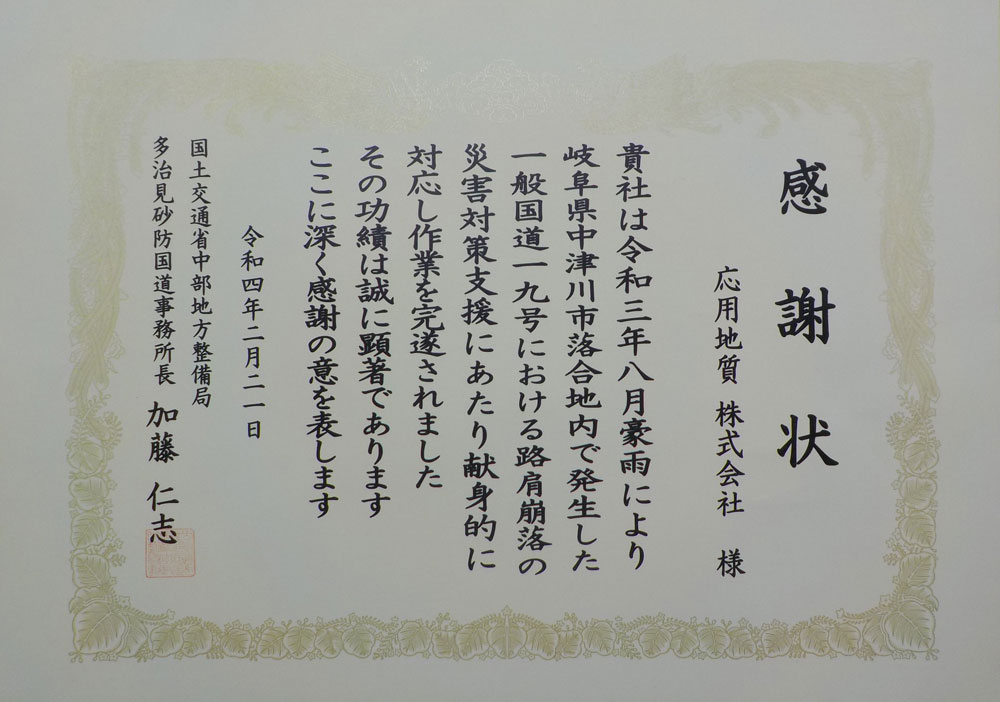 感謝状
応用地質 株式会社 様
貴社は令和三年八月豪雨により
岐阜県中津川市落合地内で発生した
一般国道一九号における路肩崩落の
災害対策支援にあたり献身的に
対応し作業を完遂されました
その功績は誠に顕著であります
ここに深く感謝の意を表します
令和四年二月二一日
国土交通省中部地方整備局
多治見砂防国道事務所長 加藤 仁志